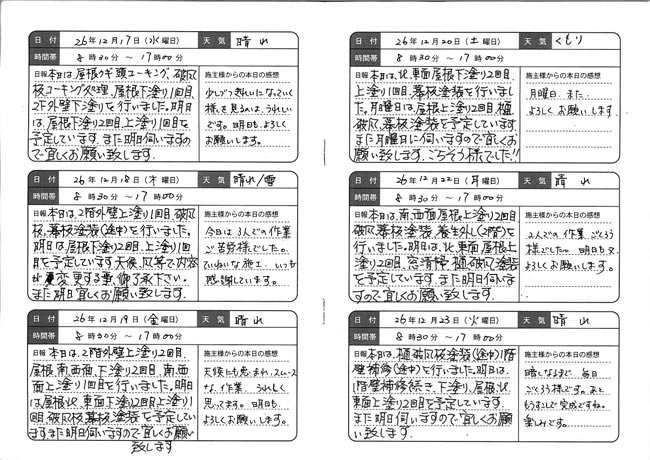 日付 26年12月17日(水曜日) 天気 晴れ
時間帯 8時30分 ～ 17時00分
日報 本日は、屋根クギ頭コーキング、破風
板コーキング処理、屋根下塗り1回目、
2F外壁下塗りを行いました。明日
は、屋根下塗り2回目、上塗り1回目を
予定しています。また明日伺いますの
で宜しくお願い致します。
施主様からの本日の感想
少しづつきれいになっていく
様を見るのは、うれしい
です。明日も、よろしく
お願いします。
日付 26年12月18日(木曜日) 天気 晴れ/雪
時間帯 8時30分 ～ 17時00分
日報 本日は、2階外壁上塗り1回目、破風
板、幕板塗装(途中)を行いました。
明日は、屋根下塗り2回目、上塗り1回
目を予定しています。天候、風等で内容
が変更する事、御了承下さい。
また明日宜しくお願い致します。
施主様からの本日の感想
今日は3人での作業
ご苦労様でした。
ていねいな施工、いつも
感謝しています。
日付 26年12月19日(金曜日) 天気 晴れ
時間帯 8時30分 ～ 17時00分
日報 本日は、2階外壁上塗り2回目、
屋根、南西面、下塗り2回目、南、西
面上塗り1回目を行いました。明日
は、屋根北、東面下塗り2回目上塗り1回
目、破風板幕板塗装を予定してい
ます。また明日伺いますので宜しくお願い
致します
施主様からの本日の感想
天候にも恵まれ、スムーズ
な、作業、うれしく
思ってます。明日も、
よろしくお願いします。
日付 26年12月20日(土曜日) 天気 くもり
時間帯 8時30分 ～ 17時00分
日報 本日は、北、東面屋根下塗り2回目、
上塗り1回目、幕板塗装を行いまし
た。月曜日は、屋根上塗り2回目、樋、
破風、幕板塗装を予定しています
また月曜日に伺いますので宜しくお
願い致します。ごちそう様でした!!
施主様からの本日の感想
月曜日、また、
よろしくお願いします
日付 26年12月22日(月曜日) 天気 晴れ
時間帯 8時30分 ～ 17時00分
日報 本日は、南、西面屋根上塗り2回目
破風、幕板塗装、養生外し(2階)を
行いました。明日は、北、東面屋根上
塗り2回目、窓清掃、樋、破風塗装
を予定しています。また明日伺いま
すので宜しくお願い致します。
施主様からの本日の感想
2人での作業、ごくろう
様でした。明日も又、
よろしくお願いします。
日付 26年12月23日(火曜日) 天気 晴れ
時間帯 8時30分 ～ 17時00分
日報 本日は、樋、破風板塗装(途中)1階
壁補修(途中)を行いました。明日は、
1階壁補修続き、下塗り、屋根、北、
東面上塗り2回目を予定しています。
また明日伺いますので宜しくお願
い致します。
施主様からの本日の感想
暗くなるまで、毎日
ごくろう様です。あと
もう少しで完成ですね。
楽しみです。